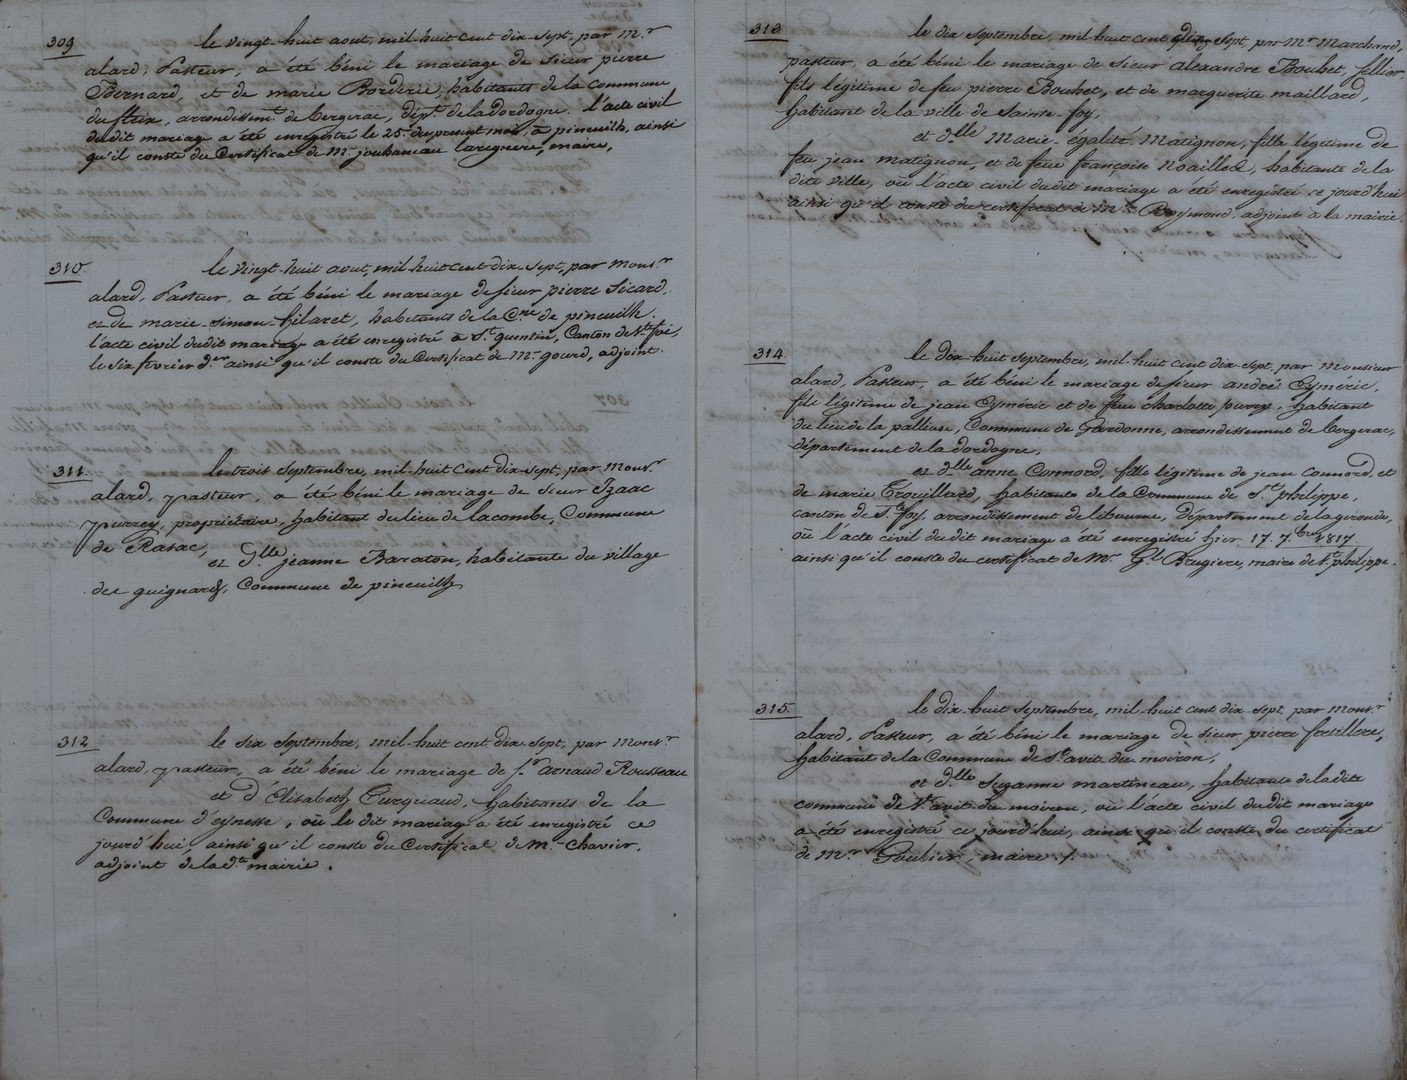 309
le vingt-huit aout, mil-huit cent dix-sept, par Mr
alard, Pasteur, a été béni le mariage de Sieur pierre
Bernard, et de marie Borderie, habitants de la Commune
du fleix, arrondissemt de bergerac, dépt de la Dordogne. l'acte civil
dudit mariage a été enregistré le 25 du present mois, à pineuilh, ainsi
qu'il conste du Certificat de Mr jouhaneau laregnere, maire,
310
le vingt-huit aout, mil-huit cent dix-sept, par Monsr
alard, Pasteur, a été béni le mariage de Sieur pierre Sicard,
et de marie-Simon-hilaret, habitants de la Cne de pineuilh.
l'acte civil dudit mariage a été enregistré à St quentin, Canton de Ste foi,
le six fevrier der ainsi qu'il conste du Certificat de Mr gourd, adjoint.
311
le trois Septembre, mil-huit cent dix-sept, par Monsr
alard, pasteur, a été béni le mariage de Sieur Izaac
purrey, propriétaire, habitant du lieu de lacombe, Commune
de Rasac,
et Dlle jeanne Baraton, habitante du village
des guignards, Commune de pineuilh
312
le six Septembre, mil-huit cent dix-sept, par Monsr
alard, pasteur, a été béni le mariage de Sr arnaud Rousseau
et d Elisabeth Turqeaud, habitants de la
Commune d'eynesse, où le dit mariage a été enregistré ce
jourd'hui, ainsi qu'il conste du Certificat de Mr Chavier,
adjoint de la dte mairie.
313
le dix Septembre, mil-huit cent dix Sept, par Mr Marchand,
pasteur, a été béni le mariage de Sieur alexandre Bouhet, Sellier,
fils légitime de feu pierre Bouhet, et de marguerite maillard,
habitant de la ville de Sainte-foy,
et dlle Marie-égalité Matignon, fille légitime de
feu jean matignon, et de feue françoise Noailles, habitante de la
dite ville, où l'acte civil dudit mariage a été enregistré ce jourd'hui
ainsi qu'il conste du certificat de Mr Raymond, adjoint à la mairie.
314
le dix huit septembre, mil-huit cent dix-sept, par Monsieur
alard, Pasteur, a été béni le mariage de Sieur andré Eymérie,
fils légitime de jean Eymérie et de feue charlotte purrey, habitant
du lieu de la palliase, Commune de Gardonne, arrondissement de bergerac,
département de la dordogne,
et dlle anne Connord, fille légitime de jean Connord, et
de marie Trouillard, habitante de la Commune de St philippe,
canton de Ste foy, arrondissement de libourne, Département de la gironde,
où l'acte civil dudit mariage a été enregistré hier 17. 7bre 1817.
ainsi qu'il conste du certificat de Mr Gl Brugiere, maire de St philippe.
315
le dix-huit septembre, mil-huit cent dix sept par Monsr
alard, Pasteur, a été béni le mariage de Sieur pierre fretillere,
habitant de la Commune de St avit du moiron,
et dlle Suzanne martineau, habitante de la dite
commune de St avit du moiron, où l'acte civil dudit mariage
a été enregistré ce jourd'hui, ainsi qu'il conste du certificat
de Mr Goubier, maire /.